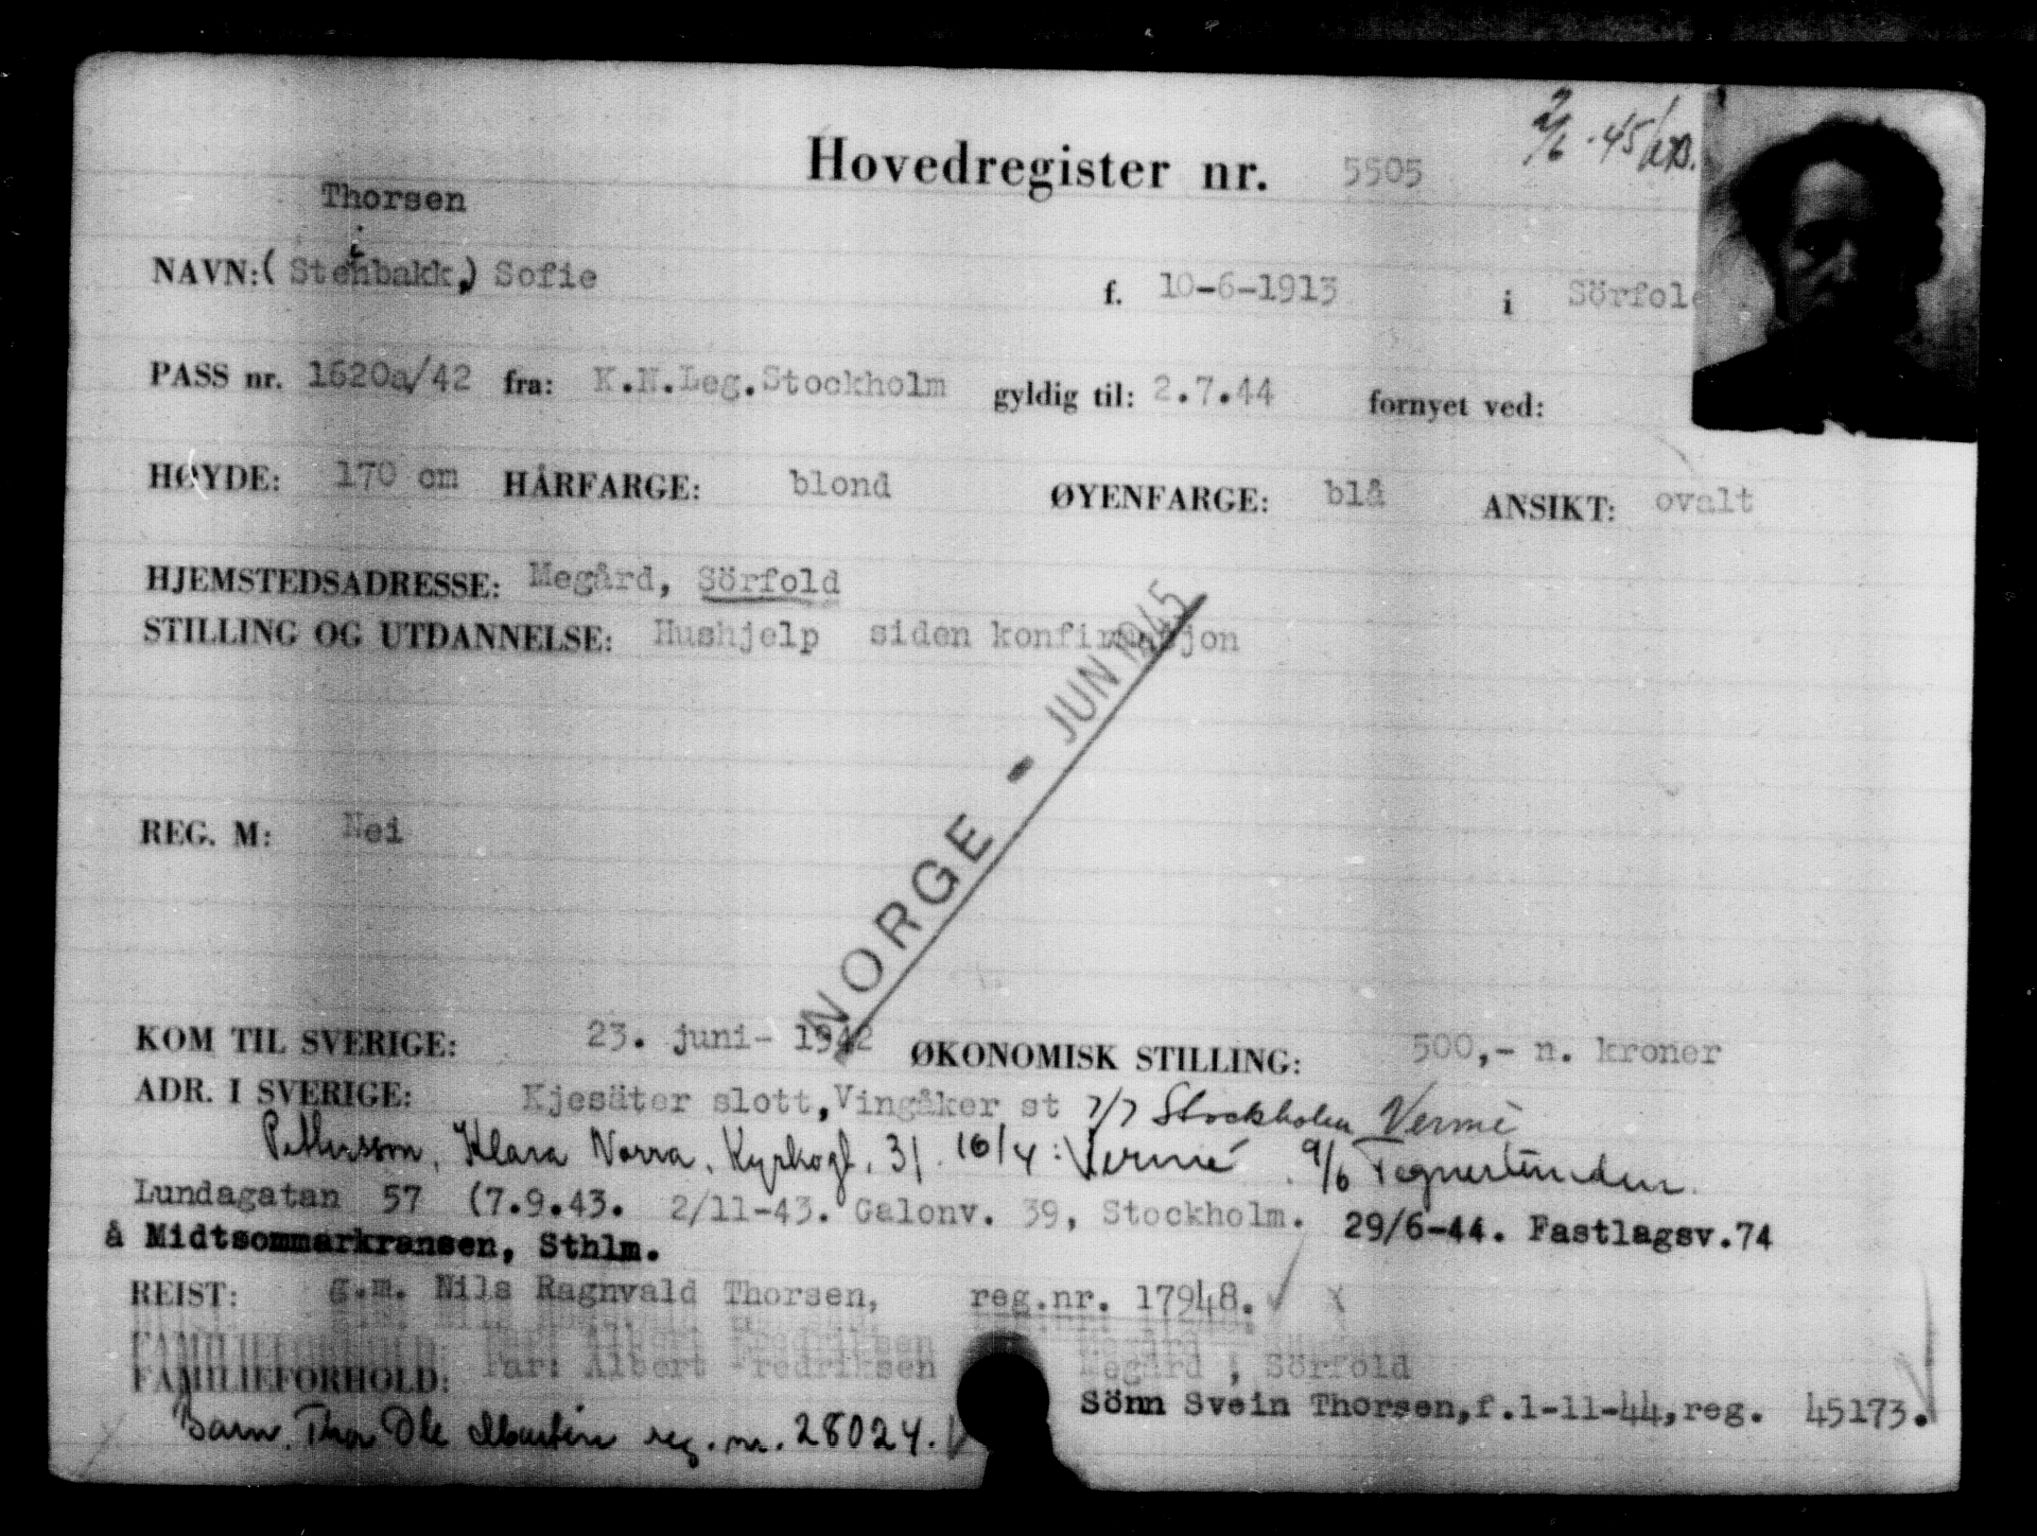 2/6 -45
Hovedregister nr. 5505
Thorsen
i
NAVN: (Stenbakk,) Sofie f. 10-6-1913 i Sörfol
PASS nr. 1620a/42 fra: K.N.Leg.Stockholm gyldig til: 2.7.44 fornyet ved:
HØYDE: 170 cm HÅRFARGE: blond ØYENFARGE: blå ANSIKT: ovalt
HJEMSTEDSADRESSE: Megård, Sörfold
STILLING OG UTDANNELSE: Hushjelp siden konfirmasjon
NORGE - JUN 1945
REG. M: Nei
KOM TIL SVERIGE: 23. juni- 1942 ØKONOMISK STILLING: 500,- n. kroner
ADR. I SVERIGE: Kjesäter slott, Vingåker st 7/7 Stockholm
Pettersson, Klara Norra, Kyrkogt, 31. 16/4: 9/6 Tegnerlunden.
Lundagatan 57 (7.9.43. 2/11-43. Galonv. 39, Stockholm. 29/6-44. Fastlagsv.74
å Midtsommarkransen, Sthlm.
REIST: g.m. Nils Ragnvald Thorsen, reg.nr. 17948.
FAMILIEFORHOLD: Far: Albert Fredriksen Megård, Sörfold
Sönn Svein Thorsen, f.1-11-44, reg. 45173.
Barn. Thor Ole Martin reg. nr. 28024.